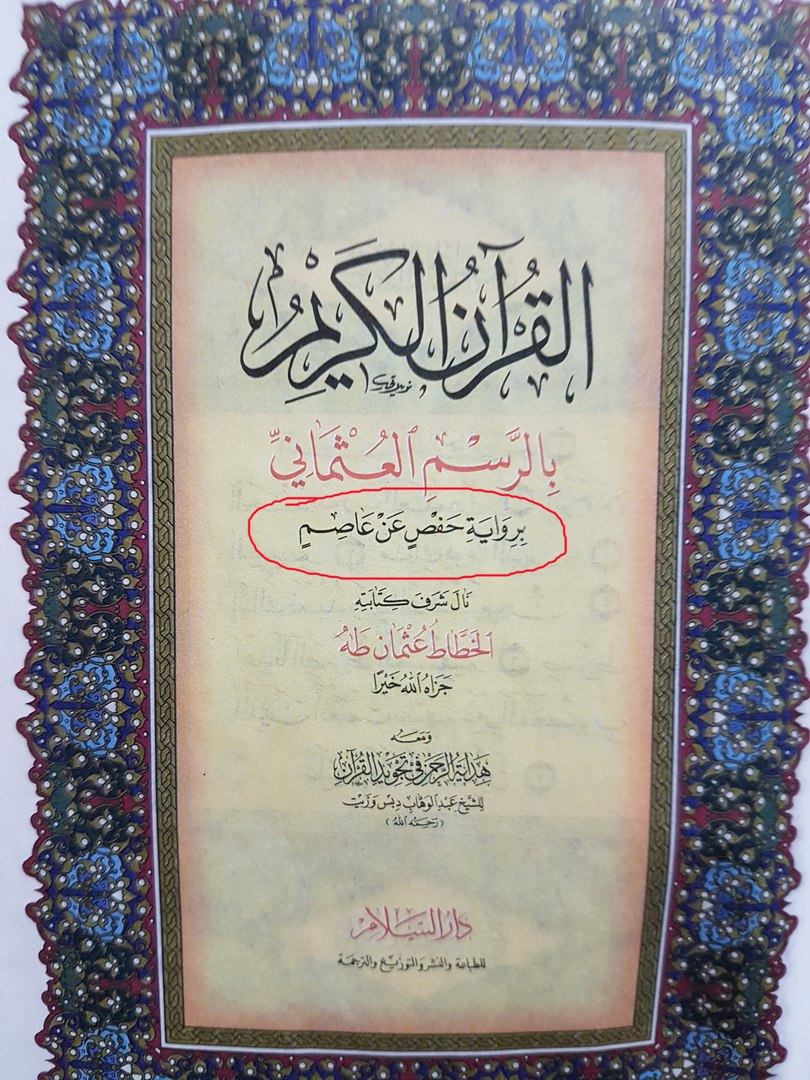 القُرْآنُ الكَرِيْمُ
بِالرَّسْمِ العُثْمَانِيِّ
بِرِوَايَةِ حَفْصٍ عَنْ عَاصِمٍ
نَالَ شَرَفَ كِتَابَتِهِ
الخَطَّاط عُثْمَان طٰهٰ
جَزَاهُ اللّٰهُ خَيْرًا
وَمَعَـه
هِدَايَةُ الرَّحْمٰن فِي تَجْوِيدِ القُرْآنِ
لِلشَّيْخ عَبْدِ الوَهَّابِ دِبْس وَزَيْت
( رَحِمَهُ اللهُ )
دَارُ السَّلَامِ
للطباعة والنشر والتوزيع والترجمة